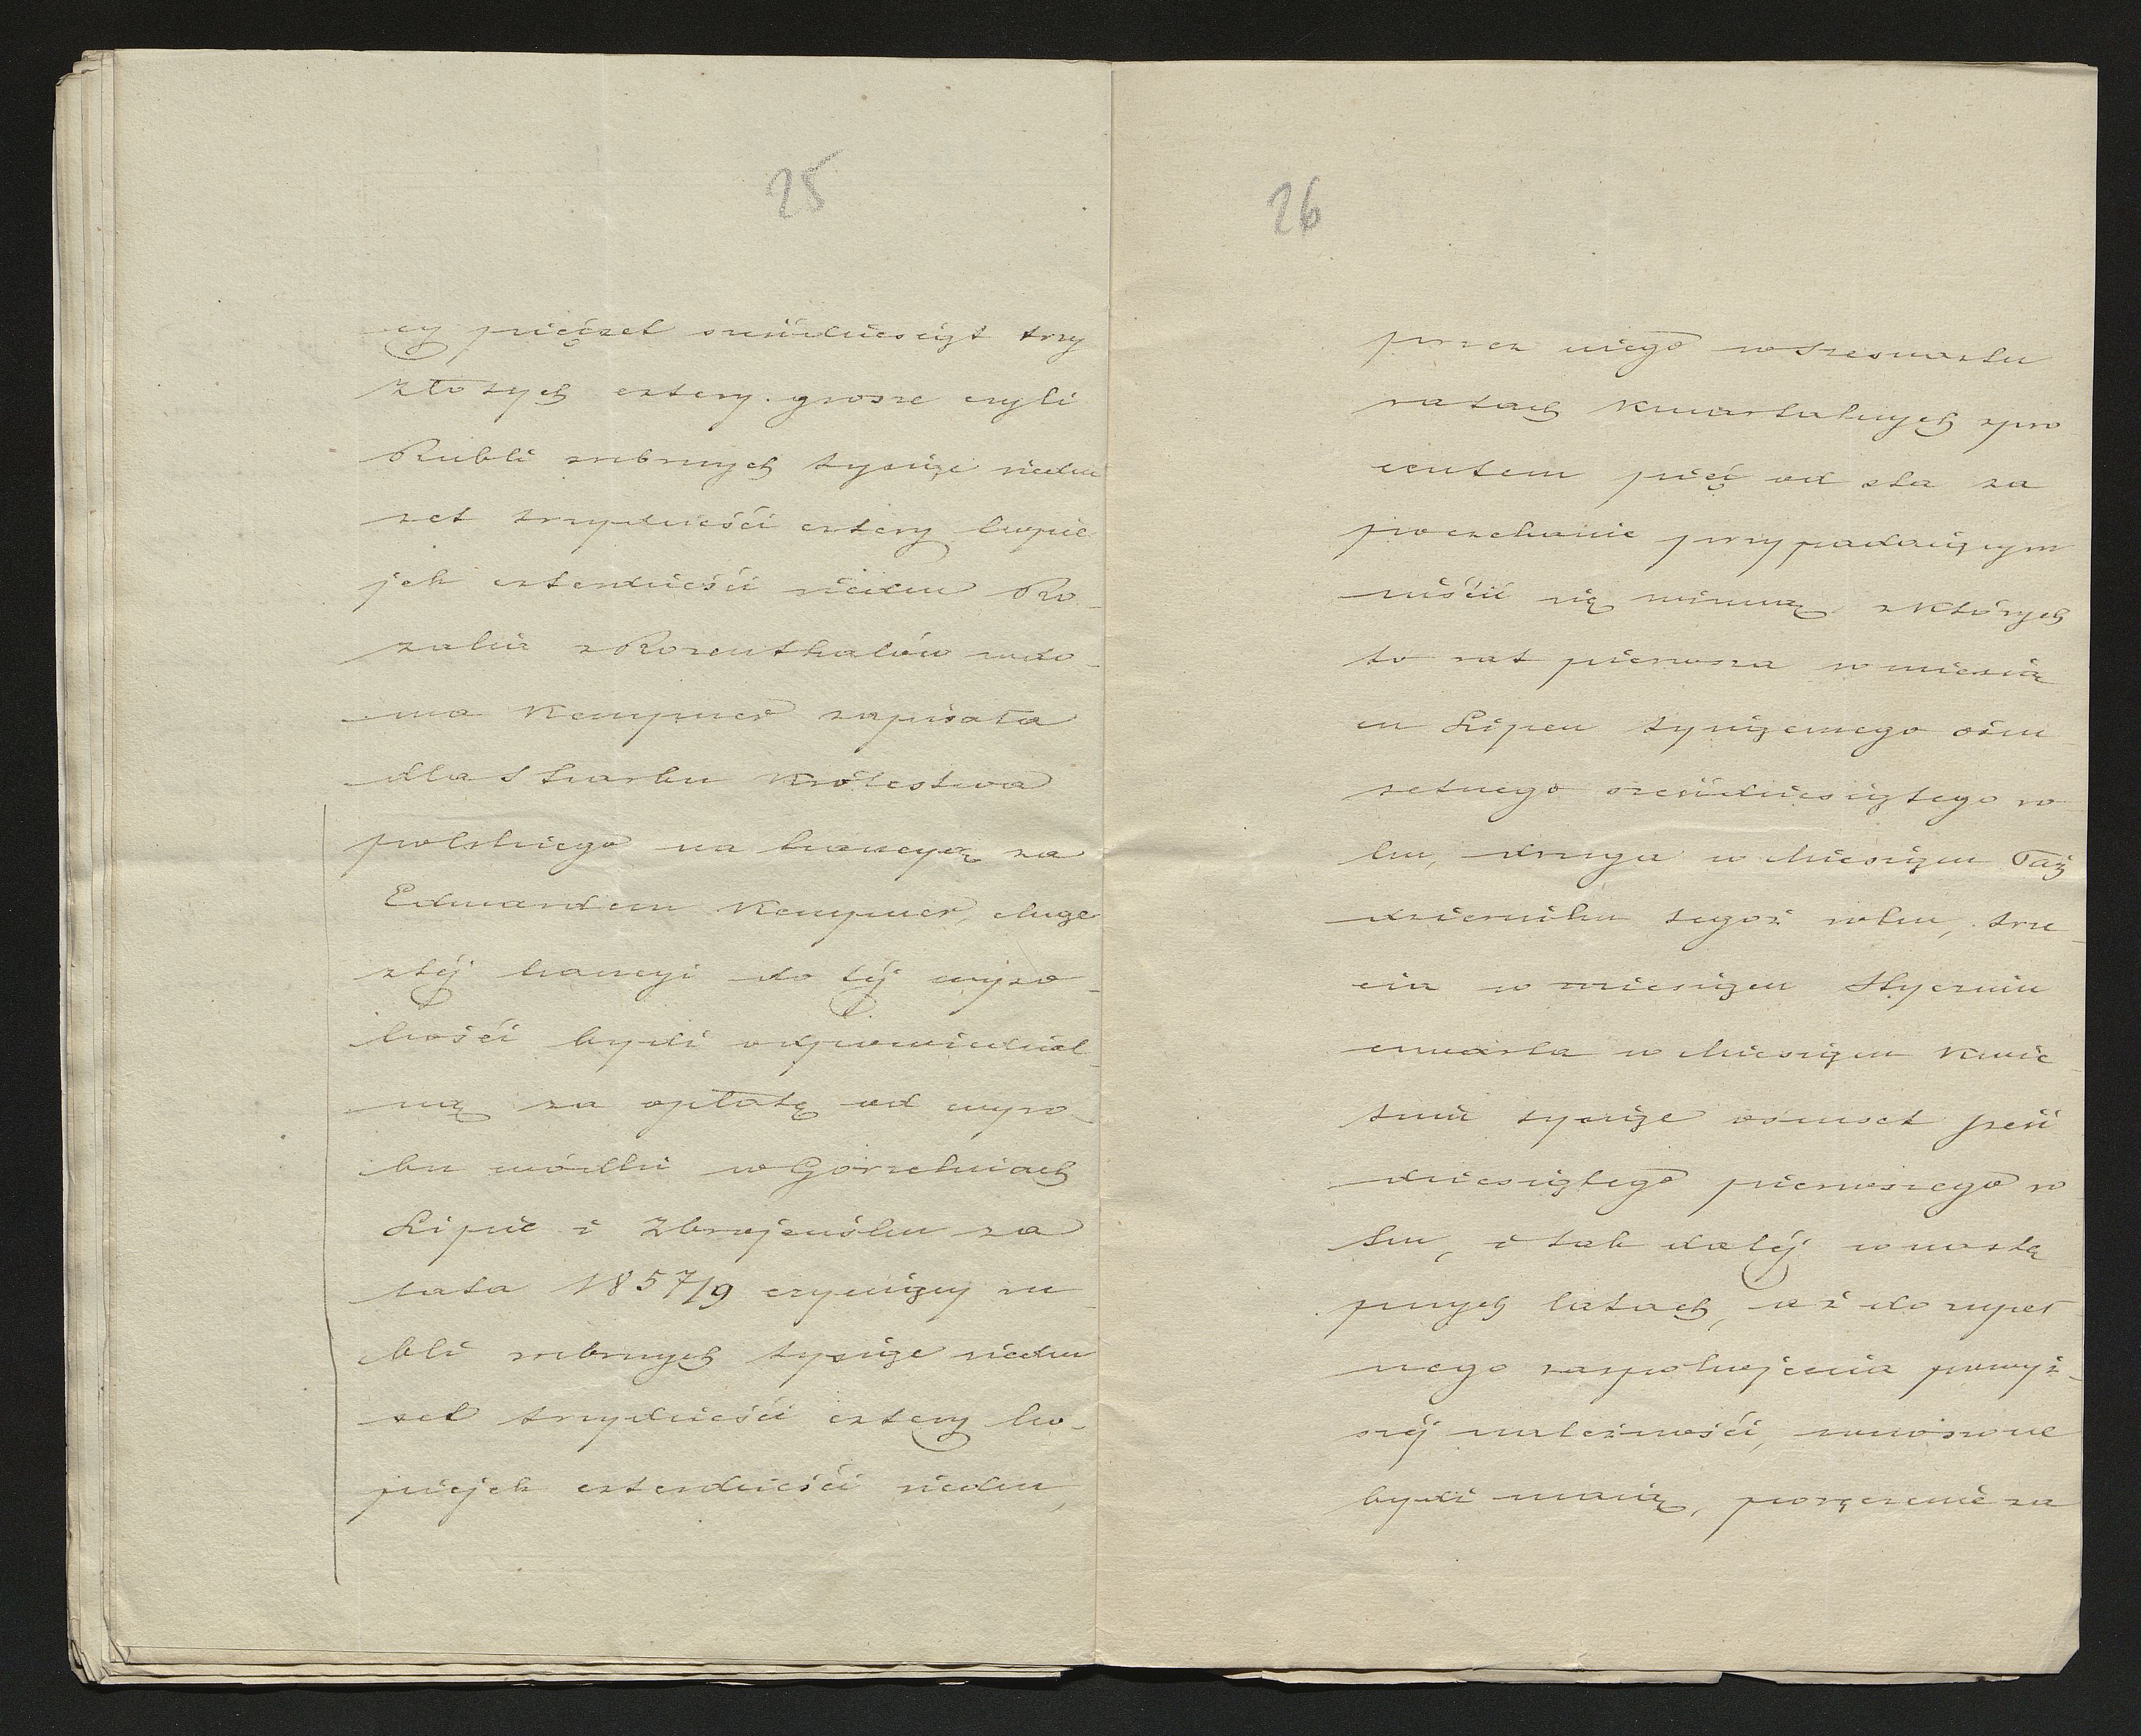 25
cy pięćset sześćdziesiąt trzy
złotych cztery grosze czyli
Rubli srebrnych tysiąc siedm
set trzydzieści cztery kopie
jek czterdzieści siedm Ro-
zalia z Rozenthalów wdo-
wa Kempner zapisała
dla Skarbu Królestwa
polskiego na kaucyą za
Edwardem Kempner,
z téj kaucyi do téj wyso-
kości bydź odpowiedzial-
ną za opłatę od wyro-
bu wódki w Gorzelniach
Lipie i Zbrojewsku za
lata 1857/9 czyniący ru-
bli srebrnych tysiąc siedm
set trzydzieści cztery ko-
piejek czterdzieści siedm,
26
przez niego w szesnastu
ratach kwartalnych z pro
centem pięć od sta za
poczekanie przypadającym
uiścić się winną z których
to rat pierwsza w miesią
cu Lipcu tysiącznego ośm
setnego sześćdziesiątego ro
ku, druga w Miesiącu Paź
dzierniku tegoż roku, trze-
cia w miesiącu Styczniu
czwarta w Miesiącu Kwie-
tniu tysiąc ośmset sześć
dziesiątego pierwszego ro
ku, i tak daléj w nastę
pnych latach, aż do zupeł
nego zaspokojenia powyż-
széj należności, wnoszone
bydź mają, poręczenie za